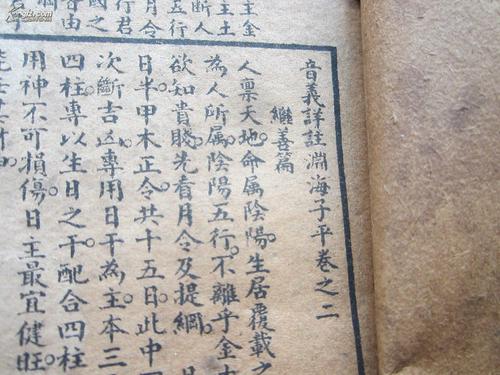 主金
主土
断人
五行
月令
行君
國之
由
音義詳註淵海子平卷之二
繼善篇
人稟天地命属陰陽。生居覆載之
為人所属陰陽五行。不離乎金木
欲知貴賤。先看月令及提綱。
日半甲木正令共十五日。此中
次斷吉凶。專用日干為主本三
四柱。專以生日之干。配合四柱
用神不可損傷。日主最宜健旺。